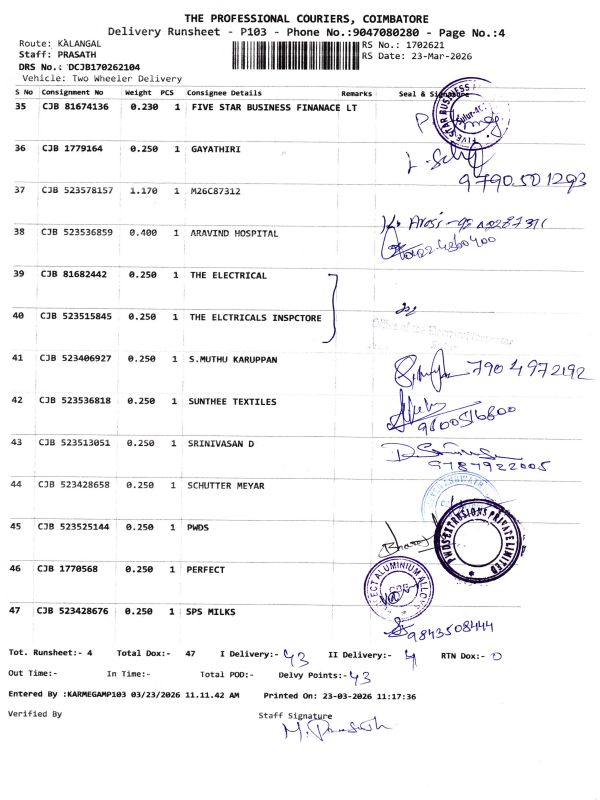 THE PROFESSIONAL COURIERS, COIMBATORE
Delivery Runsheet - P103 - Phone No.:9047080280 - Page No.:4
Route: KALANGAL
RS No.: 1702621
Staff: PRASATH
RS Date: 23-Mar-2026
DRS No.: DCJB170262104
Vehicle: Two Wheeler Delivery
S No Consignment No Weight PCS Consignee Details Remarks Seal & Signature
35 CJB 81674136 0.230 1 FIVE STAR BUSINESS FINANACE LT
36 CJB 1779164 0.250 1 GAYATHIRI
9790501293
37 CJB 523578157 1.170 1 M26C87312
38 CJB 523536859 0.400 1 ARAVIND HOSPITAL
0422-4360400
39 CJB 81682442 0.250 1 THE ELECTRICAL
40 CJB 523515845 0.250 1 THE ELCTRICALS INSPCTORE
Office of the Electrical Inspector
41 CJB 523406927 0.250 1 S.MUTHU KARUPPAN
7904972192
42 CJB 523536818 0.250 1 SUNTHEE TEXTILES
9600516800
43 CJB 523513051 0.250 1 SRINIVASAN D
9787922005
44 CJB 523428658 0.250 1 SCHUTTER MEYAR
45 CJB 523525144 0.250 1 PWDS
PWDS EXTRUSIONS PRIVATE LIMITED
46 CJB 1770568 0.250 1 PERFECT
PERFECT ALUMINIUM ALLOYS
47 CJB 523428676 0.250 1 SPS MILKS
9843508444
Tot. Runsheet:- 4 Total Dox:- 47 I Delivery:- 43 II Delivery:- 4 RTN Dox:- 0
Out Time:- In Time:- Total POD:- Delvy Points:- 43
Entered By :KARMEGAMP103 03/23/2026 11.11.42 AM Printed On: 23-03-2026 11:17:36
Verified By
Staff Signature
M. Prasath